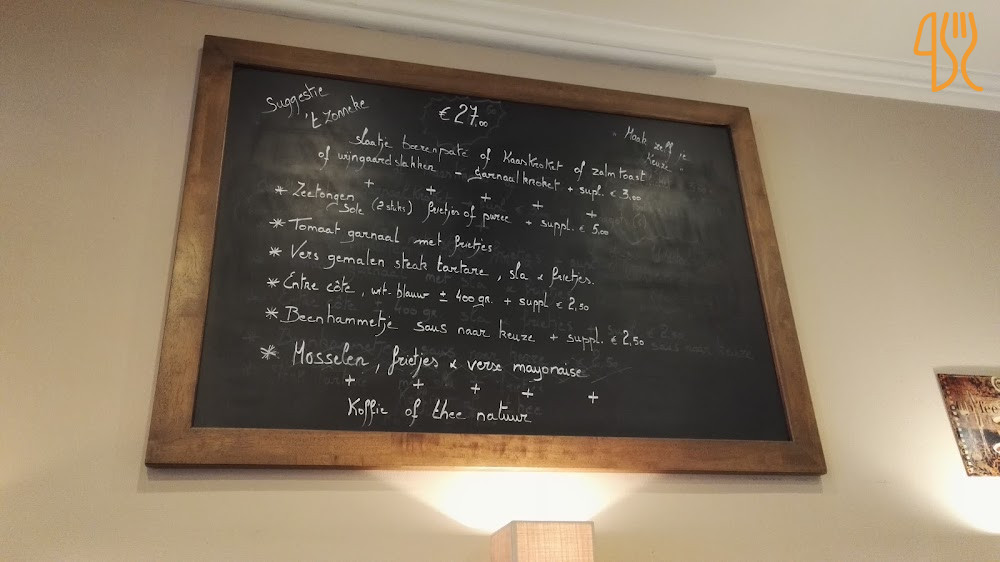 Suggestie
't Zonneke
€ 27,00
" Maak zelf je
keuze "
slaatje boerenpaté of Kaaskroket of zalmtoast
of wijngaardslakken - garnaalkroket + supl. € 3,00
+ + + + +
* Zeetongen (2 stuks) frietjes of puree + suppl. € 5,00
Sole
* Tomaat garnaal met frietjes
* Vers gemalen steak tartare, sla & frietjes.
* Entre côte, wit-blauw ± 400 gr. + suppl € 2,50
* Beenhammetje saus naar keuze + suppl. € 2,50
* Mosselen, frietjes & verse mayonaise
+ + + + +
Koffie of thee natuur